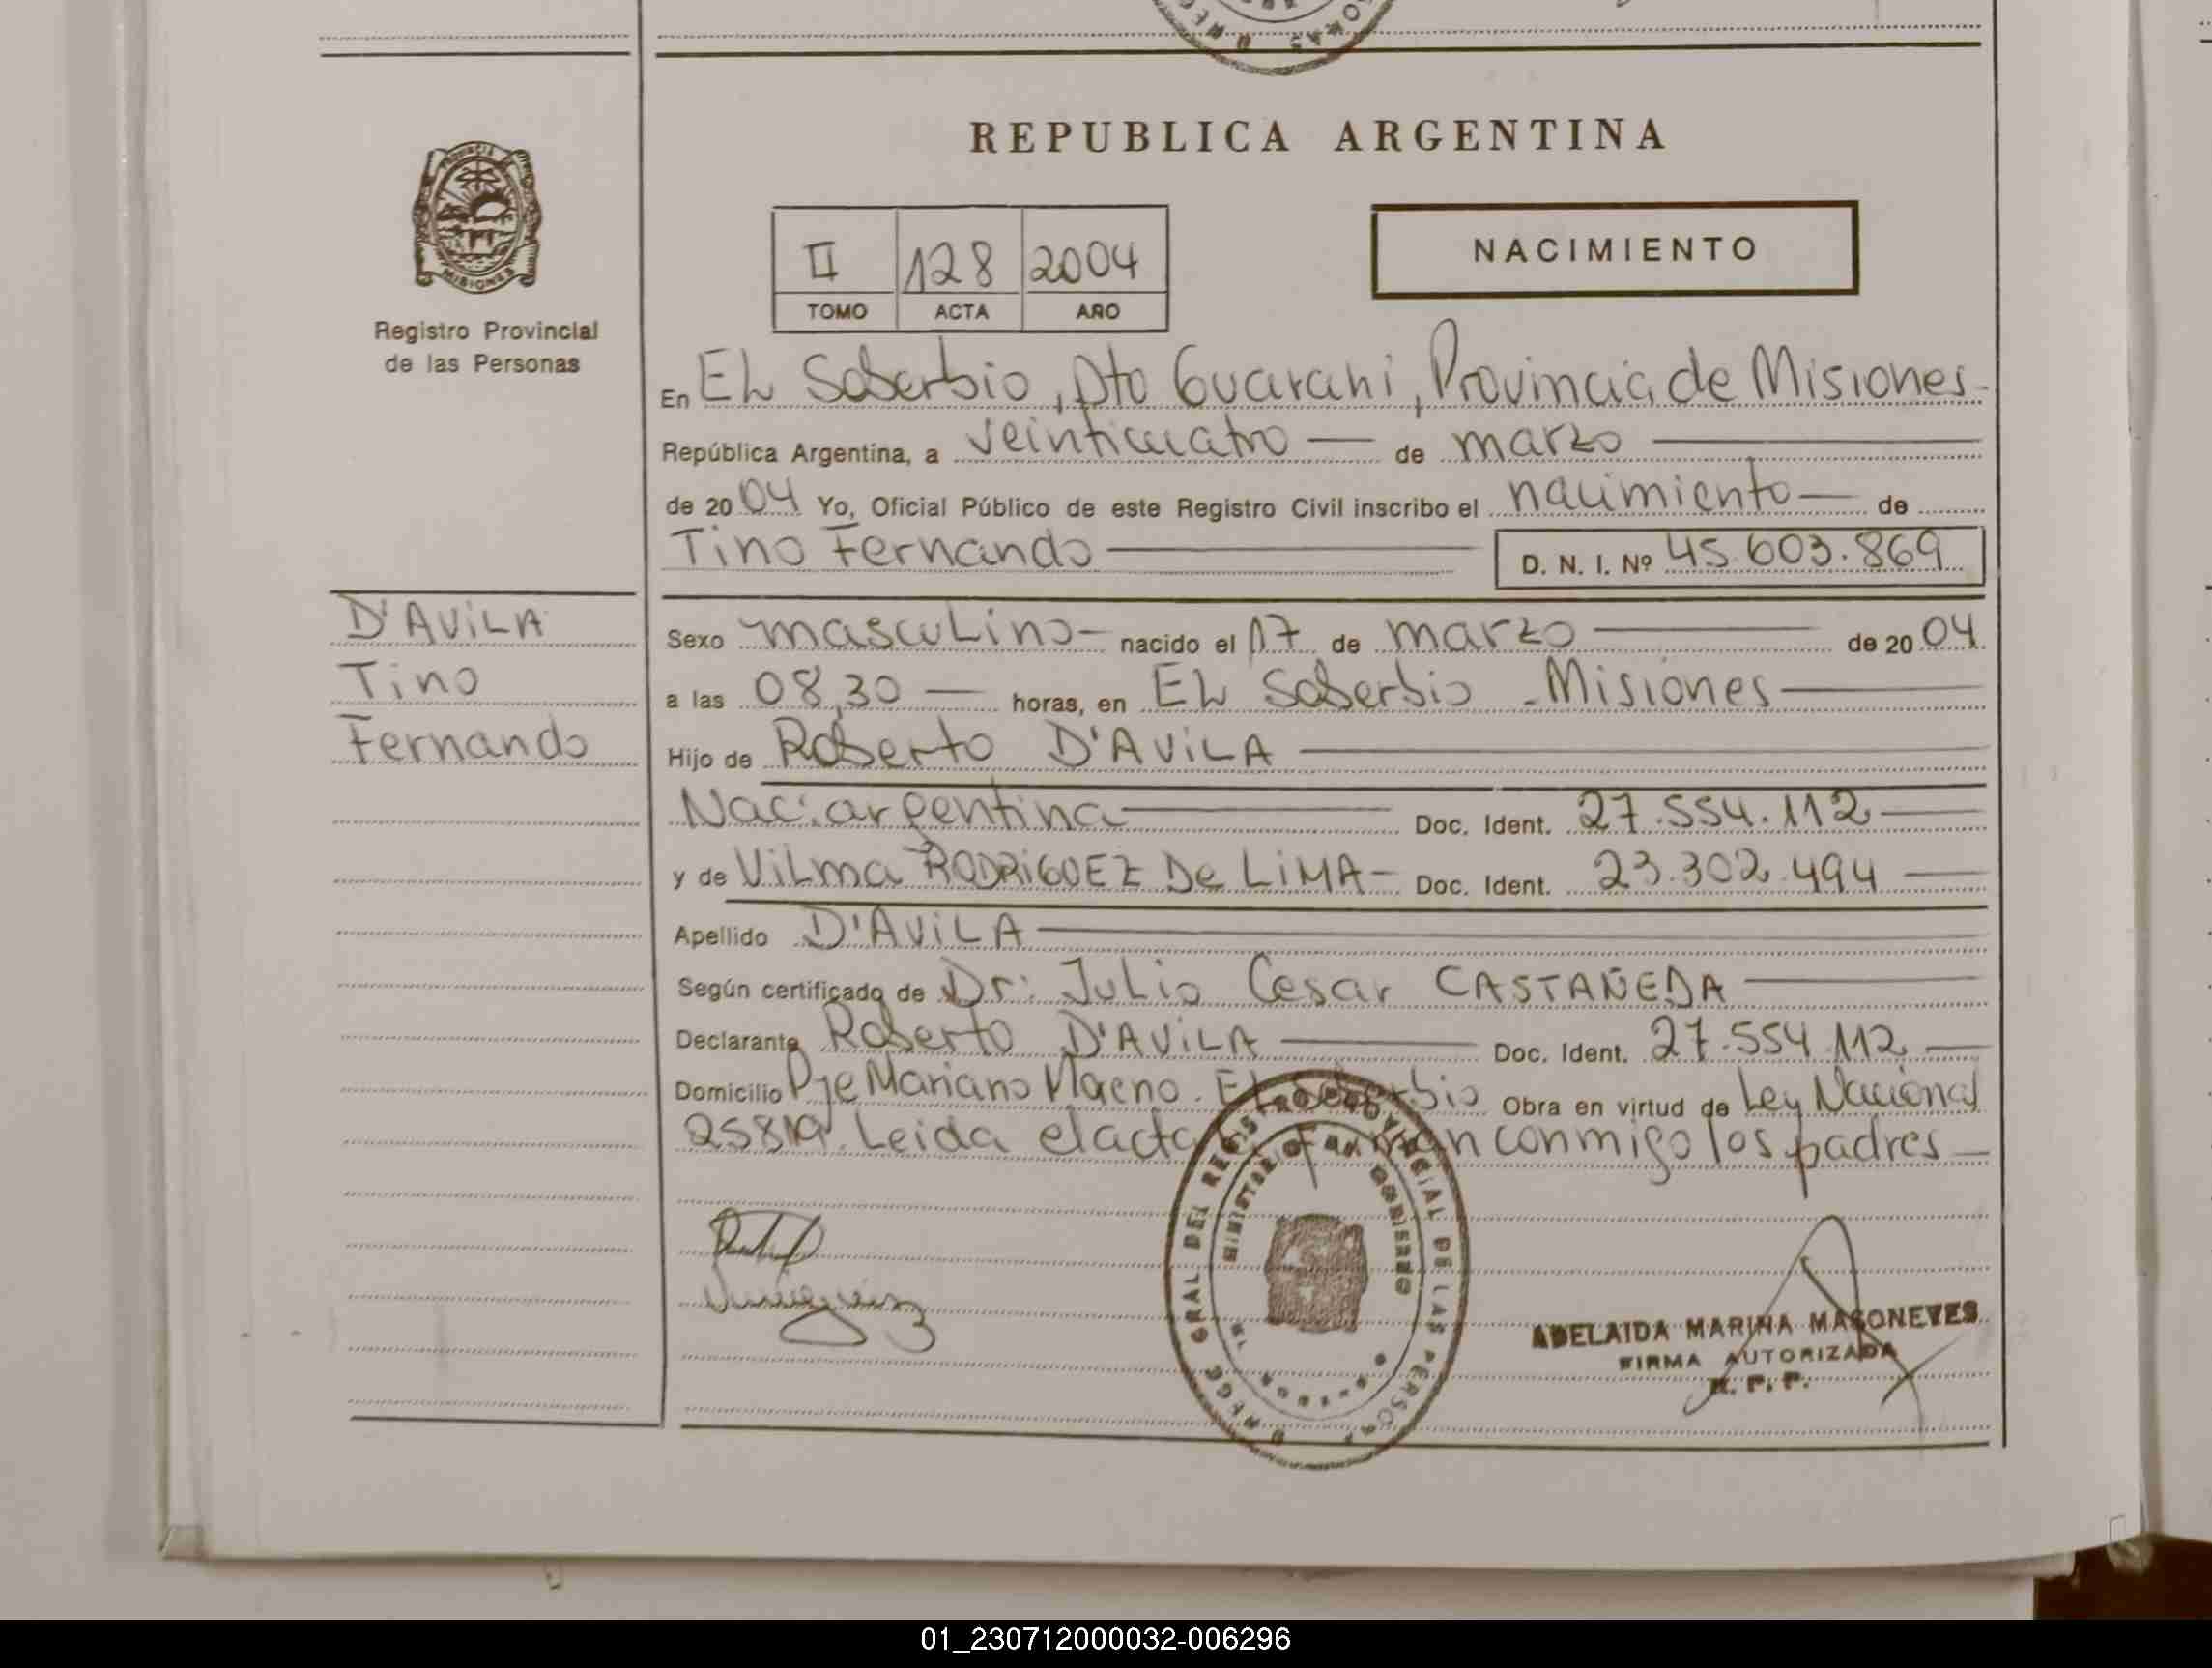 REPUBLICA ARGENTINA
PROVINCIA DE
MISIONES
Registro Provincial
de las Personas
II 128 2004
TOMO ACTA AÑO
NACIMIENTO
En EL Soberbio, Dto Guarani, Provincia de Misiones
República Argentina, a veinticuatro de marzo
de 2004 Yo, Oficial Público de este Registro Civil inscribo el nacimiento de
Tino Fernando D. N. I. Nº 45.603.869
D'AVILA
Tino
Fernando
Sexo masculino nacido el 17 de marzo de 2004
a las 08,30 horas, en EL Soberbio - Misiones
Hijo de Roberto D'AVILA
Nac: argentina Doc. Ident. 27.554.112
y de Vilma RODRIGUEZ De LIMA Doc. Ident. 23.302.494
Apellido D'AVILA
Según certificado de Dr: Julio Cesar CASTAÑEDA
Declarante Roberto D'AVILA Doc. Ident. 27.554.112
Domicilio Pje Mariano El Soberbio Obra en virtud de Ley Nacional
25819. Leida el acta firman conmigo los padres
GRAL DEL REGISTRO PROVINCIAL DE LAS PERSONAS
MINISTERIO DE GOBIERNO
ADELAIDA MARINA MASONEVES
FIRMA AUTORIZADA
R. P. P.
01_230712000032-006296